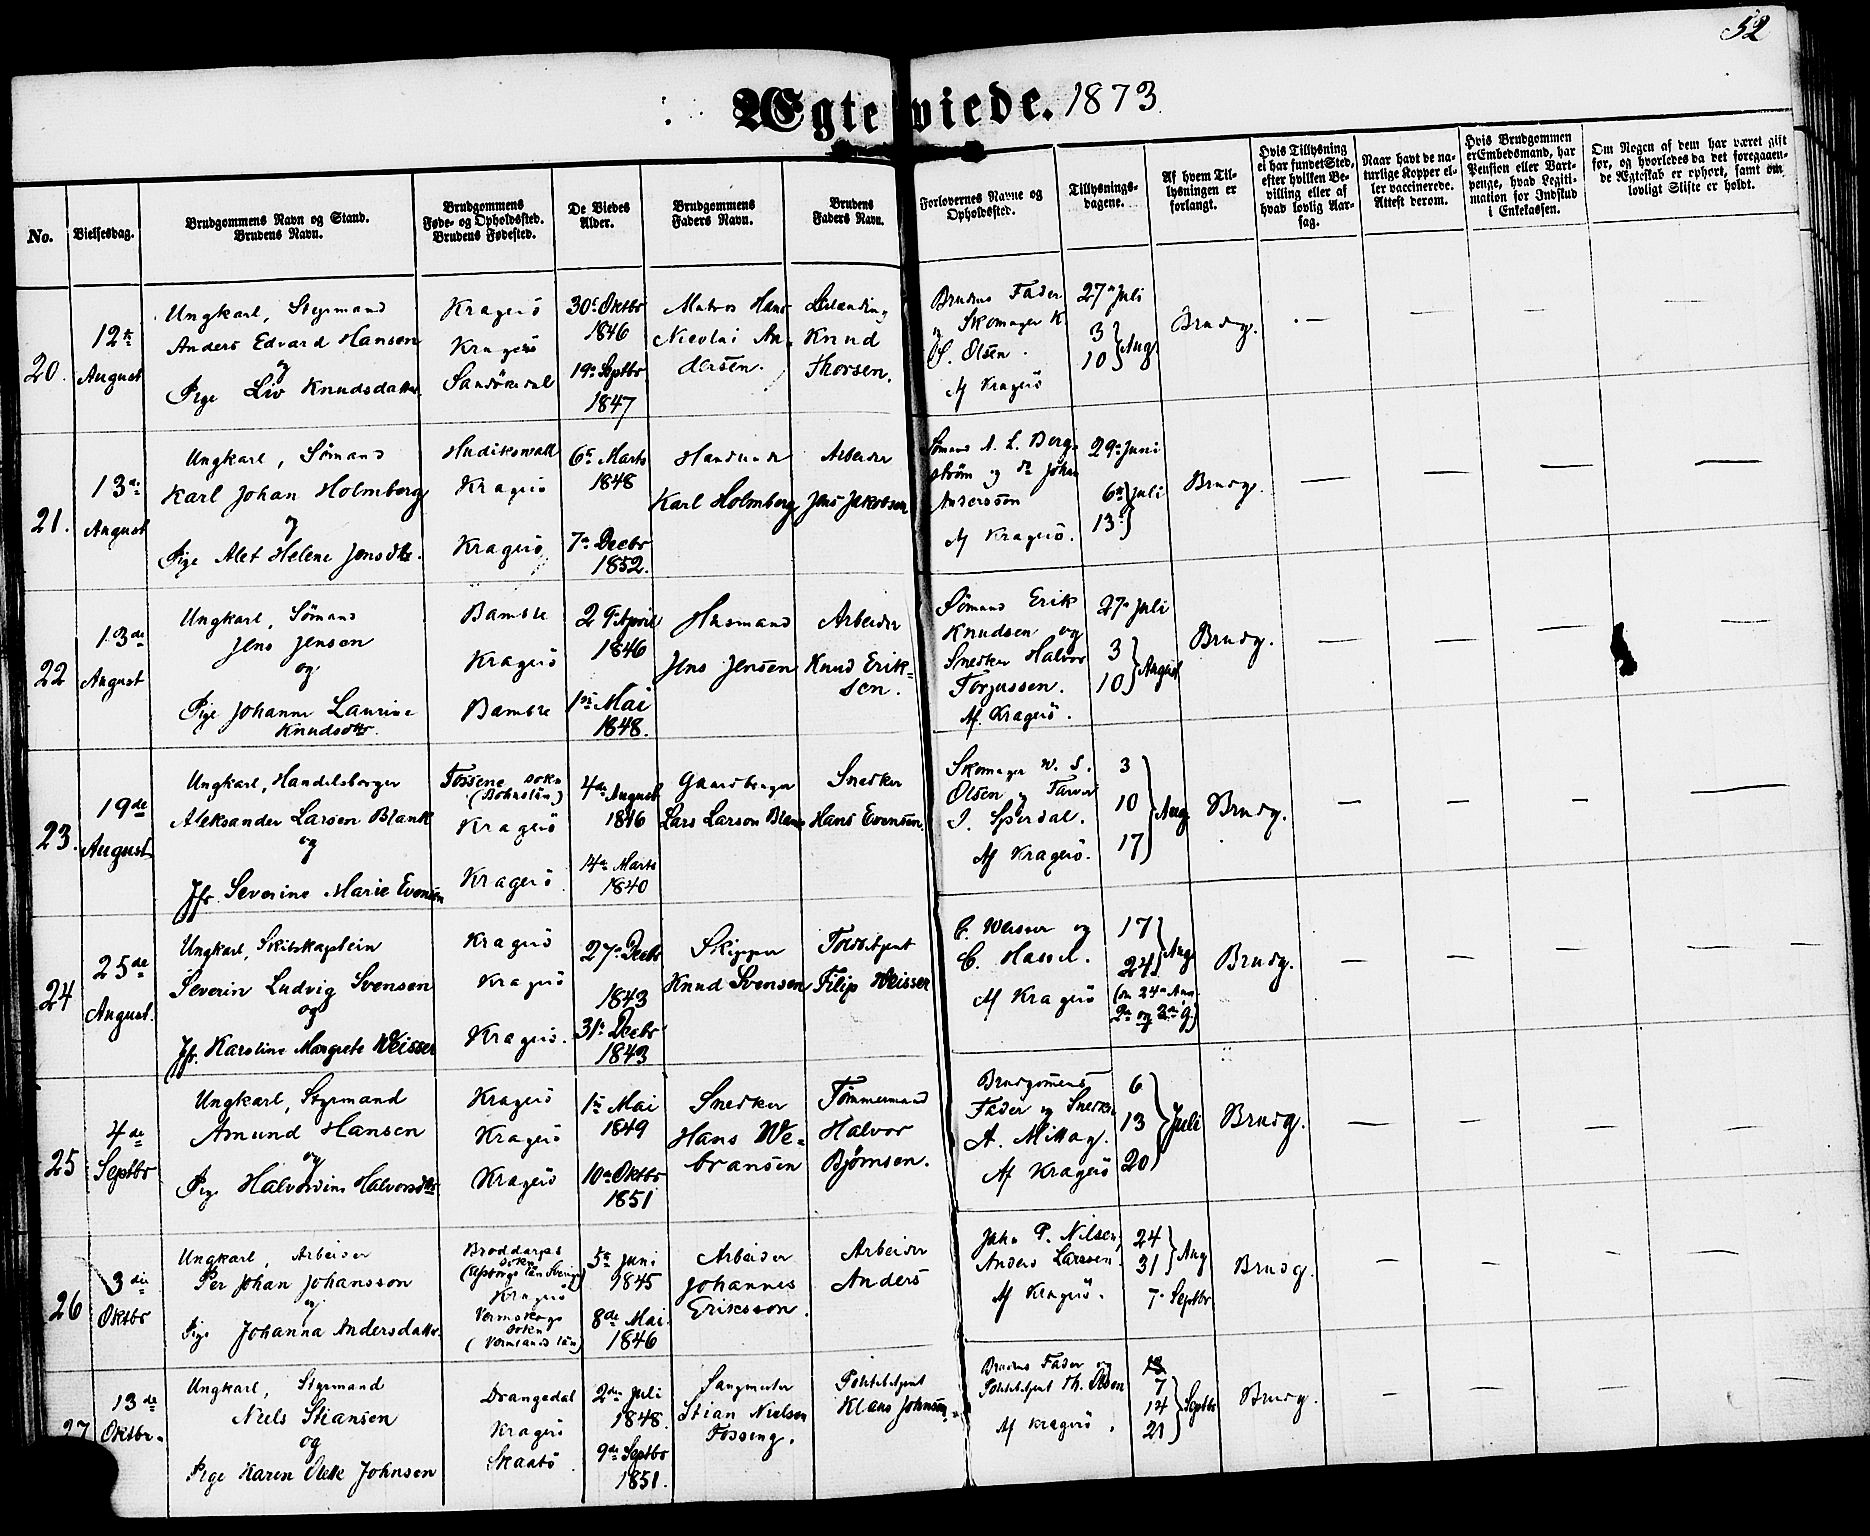 52
Ægteviede. 1873
No.
Vielsesdag.
Brudgommens Navn og Stand.
Brudens Navn.
Brudgommens
Føde- og Opholdssted.
Brudens Fødested.
De Viedes
Alder.
Brudgommens
Faders Navn.
Brudens
Faders Navn.
Forlovernes Navne og
Opholdssted.
Tillysnings-
dagene.
Af hvem Til-
lysningen er
forlangt.
Hvis Tillysning
ei har fundet Sted,
efter hvilken Be-
villing eller af
hvad lovlig Aar-
sag.
Naar havt de na-
turlige Kopper el-
ler vaccinerede.
Attest derom.
Hvis Brudgommen
er Embedsmand, har
Pension eller Vart-
penge, hvad Legiti-
mation for Indskud
i Enkekassen.
Om Nogen af dem har været gift
før, og hvorledes da det foregaaen-
de Ægteskab er ophørt, samt om
lovligt Skifte er holdt.
20.
12te
August
Ungkarl, Styrmand
Anders Edvard Hansen
og
Pige Liv Knudsdatter
Kragerö
Kragerö
Sandökedal
30te Oktbr
1846
19de Septbr
1847
Matros Hans
Nicolai An-
dersen.
Knud
Thorsen.
Brudens Fader
og Skomager K.
Olsen.
Af Kragerö
27de Juli
3
10 } Aug.
Brudg.
21.
13de
August
Ungkarl, Sömand
Karl Johan Holmberg
og
Pige Alet Helene Jensdtr.
Hudikswall
Kragerö
Kragerö
6te Marts
1848
7de Decbr
1852.
Karl Holmberg
Arbeider
Jens Jakobsen
Sömand A. L. Berg-
ström og do Johan
Andersson
Af Kragerö.
29de Juni
6te } Juli
13de
Brudg.
22
13de
August
Ungkarl, Sömand
Jens Jensen
og
Pige Johanne Laurine
Knudsdtr.
Bamble
Kragerö
Bamble
2 April
1846
1ste Mai
1848.
Husmand
Jens Jensen
Arbeider
Knud Erik-
sen.
Sömand Erik
Knudsen og
Snedker Halvor
Torjussen.
Af Kragerö.
27de Juli
3
10 } August
Brudg.
23.
19de
August
Ungkarl, Handelsborger
Aleksander Larsen Blank
og
Jfr. Severine Marie Evensen
Tossene Sokn
(Bohuslän)
Kragerö
Kragerö
4de August
1846
14de Marts
1840
Lars Larson Blank
Snedker
Hans Evensen.
Skomager W. S.
Olsen og Farver
Af Kragerö.
3
10 } Aug.
17
Brudg.
24
25de
August.
Ungkarl, Skibskaptein
Severin Ludvig Svensen
og
Jfr. Karoline Margrete Weisser
Kragerö
Kragerö
Kragerö.
27de Decbr
1843
31te Decbr
1843
Skipper
Knud Svensen
Toldbetjent
Filip Weisser
C. Weisser og
C. Hassel.
Af Kragerö
17
24 } Aug
(den 24de Aug.
2den og 3die G.)
Brudg.
25
4de
Septbr
Ungkarl, Styrmand
Amund Hansen
og
Pige Halvordine Halvorsdtr
Kragerö
Kragerö
Kragerö
1ste Mai
1849
10de Oktbr
1851
Snedker
Hans We-
bransen
Tömmermand
Halvor
Björnsen.
Brudgommens
Fader og Snedker
A. Mittag.
Af Kragerö
6
13 } Juli
20
Brudg.
26
3die
Oktbr
Ungkarl, Arbeider
Per Johan Johansson
og
Pige Johanna Andersdatter.
Broddarps
Sokn
Kragerö
Vermskogs
Sokn
(Vermlands län)
5te Juni
1845
8de Mai
1846
Arbeider
Johannes
Eriksson.
Arbeider
Anders
John P. Nilsen,
Anders Larssen.
Af Kragerö.
24
31 } Aug
7de Septbr
Brudg.
27
13de
Oktbr.
Ungkarl, Styrmand
Niels Stiansen
og
Pige Karen Johnsen
Drangedal
Kragerö
Skaatö
2den Juli
1848.
9de Septbr
1851.
Sagmester
Stian Nielsen
Fossing.
Politibetjent
Klaus Johnsen.
Brudens Fader og
Politibetjent Th. Olsen
Af Kragerö.
7
14 } Septbr
21
Brudg.